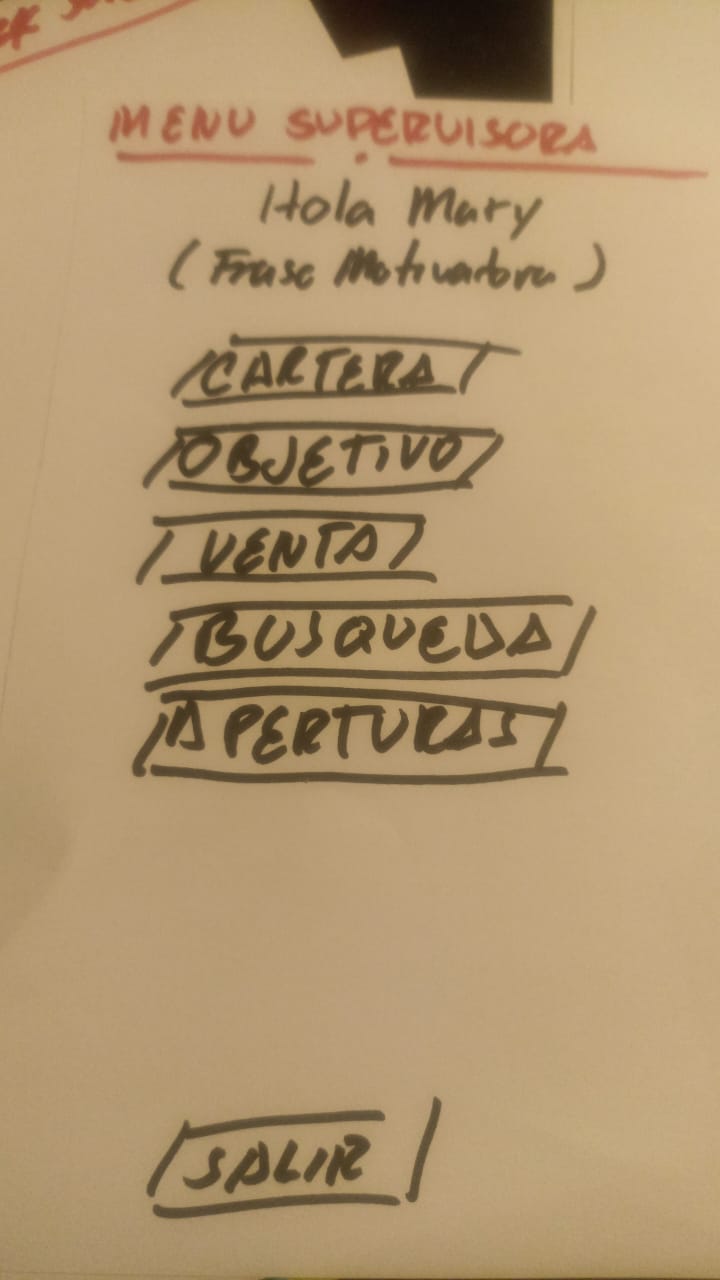 MENU SUPERVISORA
Hola Mary
(Frase Motivadora)
CARTERA
OBJETIVO
VENTA
BUSQUEDA
APERTURAS
SALIR